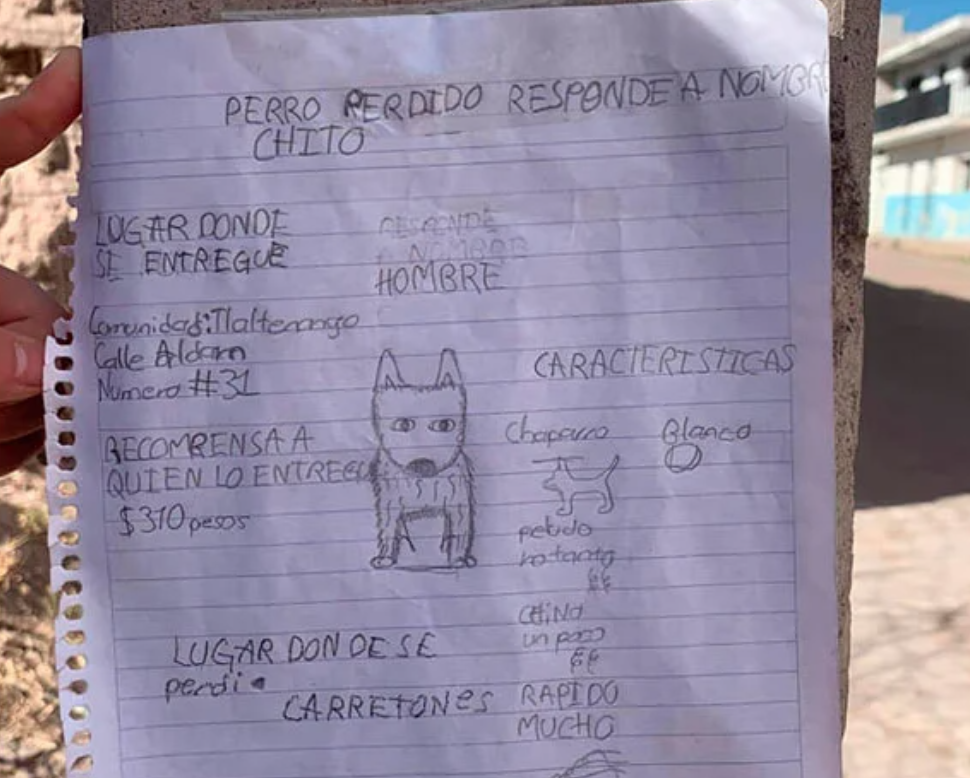 PERRO PERDIDO RESPONDE A NOMBRE
CHITO
LUGAR DONDE
SE ENTREGUE
RESPONDE
A NOMBRE
HOMBRE
Comunidad:Tlaltenango
Calle Aldam
Numero #31
RECOMPENSA A
QUIEN LO ENTREGU
$310 pesos
CARACTERISTICAS
Chaparro
Blanco
peludo
no tanto
CHiNO
un poco
RAPIDO
MUCHO
LUGAR DONDE SE
perdi
CARRETONes